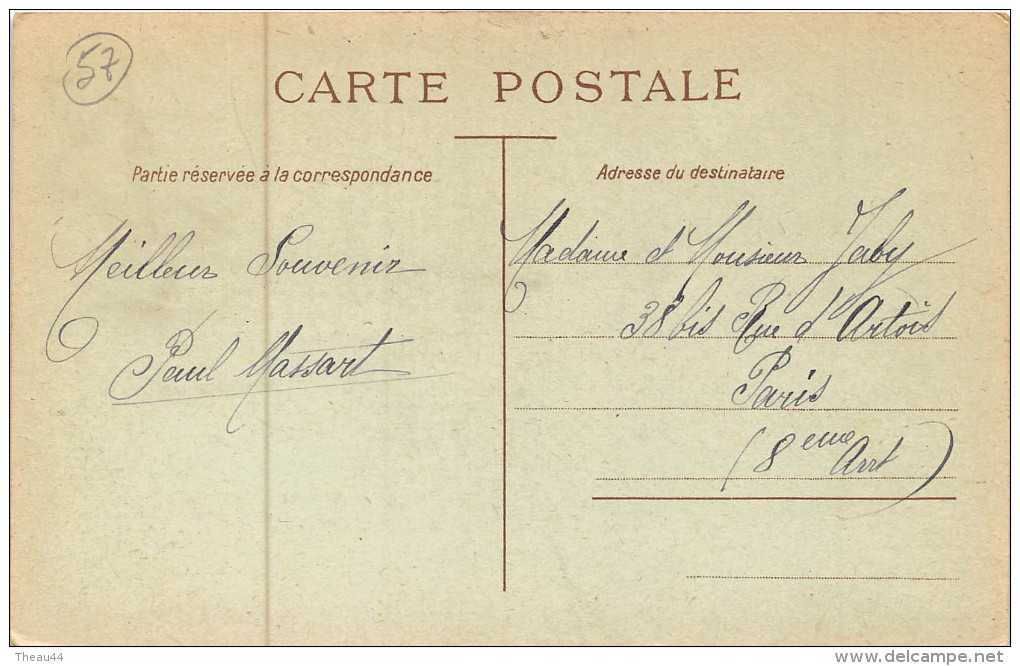 57
CARTE POSTALE
Partie réservée à la correspondance
Adresse du destinataire
Meilleur Souvenir
Paul Massart
Madame et Monsieur Jaby
38 bis Rue d'Artois
Paris
(8eme Arrt)
Theau44
www.delcampe.net